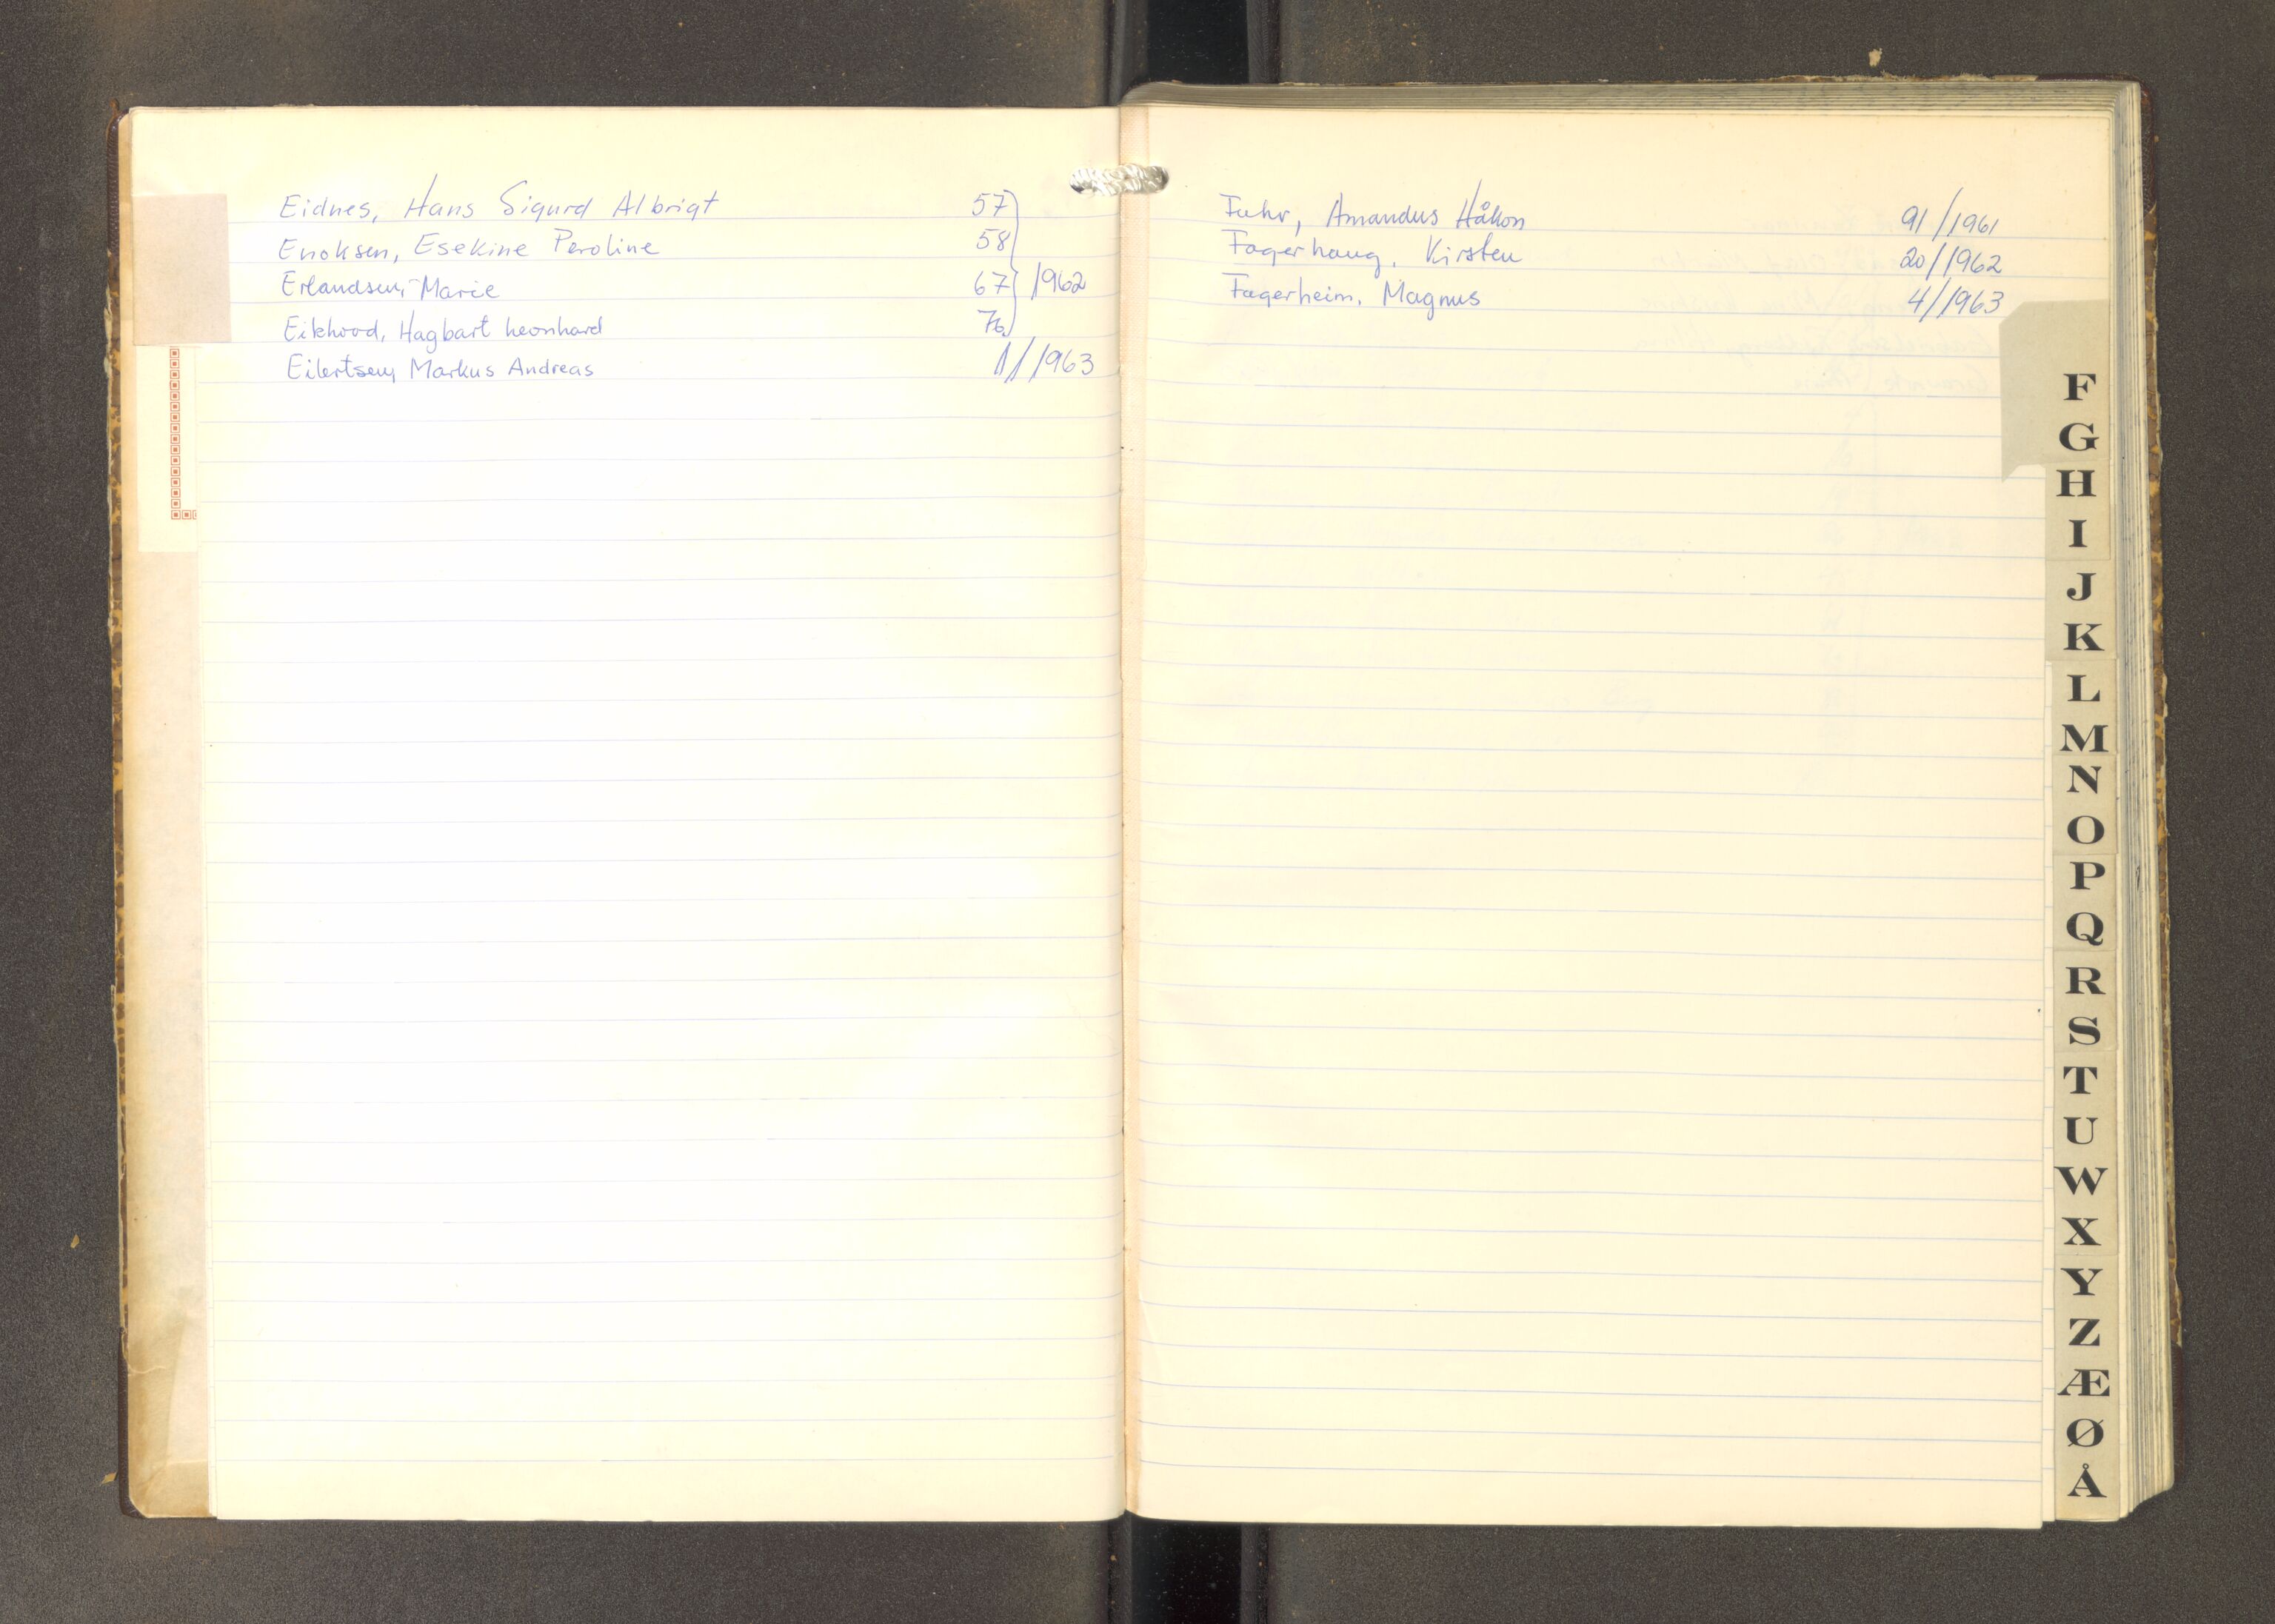 Eidnes, Hans Sigurd Albrigt 57
Enoksen, Esekine Peroline 58
Erlandsen, Marie 67 } 1962
Eikhood, Hagbart Leonhard 76
Eilertsen, Markus Andreas 11/1963
Fuhr, Amandus Håkon 91/1961
Fagerhaug, Kirsten 20/1962
Fagerheim, Magnus 4/1963
F
G
H
I
J
K
L
M
N
O
P
Q
R
S
T
U
W
X
Y
Z
Æ
Ø
Å